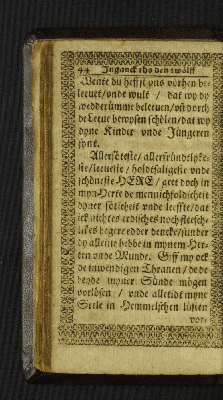 44 Inganck tho den twölff
Wente du heffst vns vörhen be-
leeuet/vnde wult / dat wy dy
wedderümme beleeuen/vñ dorch
de Leeue bewysen schölen/dat wy
dyne Kinder vnde Jüngeren
synt.
Allersöteste/ allerfründtlykes-
te/leeueste / holdtsaligeste vnde
schöneste HERE/ geet doch in
myn Herte de mennichfoldicheit
dyner söticheit vnde leeffte/dat
ick nichtes erdisches noch fleesch-
likes begere edder dencke/sünder
dy alleine hebbe in mynem Her-
ten vnde Munde. Giff my ock
de inwendigen Thranen/ de de
bende myner Sünde mögen
vorlösen / vnde alletidt myne
Seele in Hemmelschen lüsten
vor-